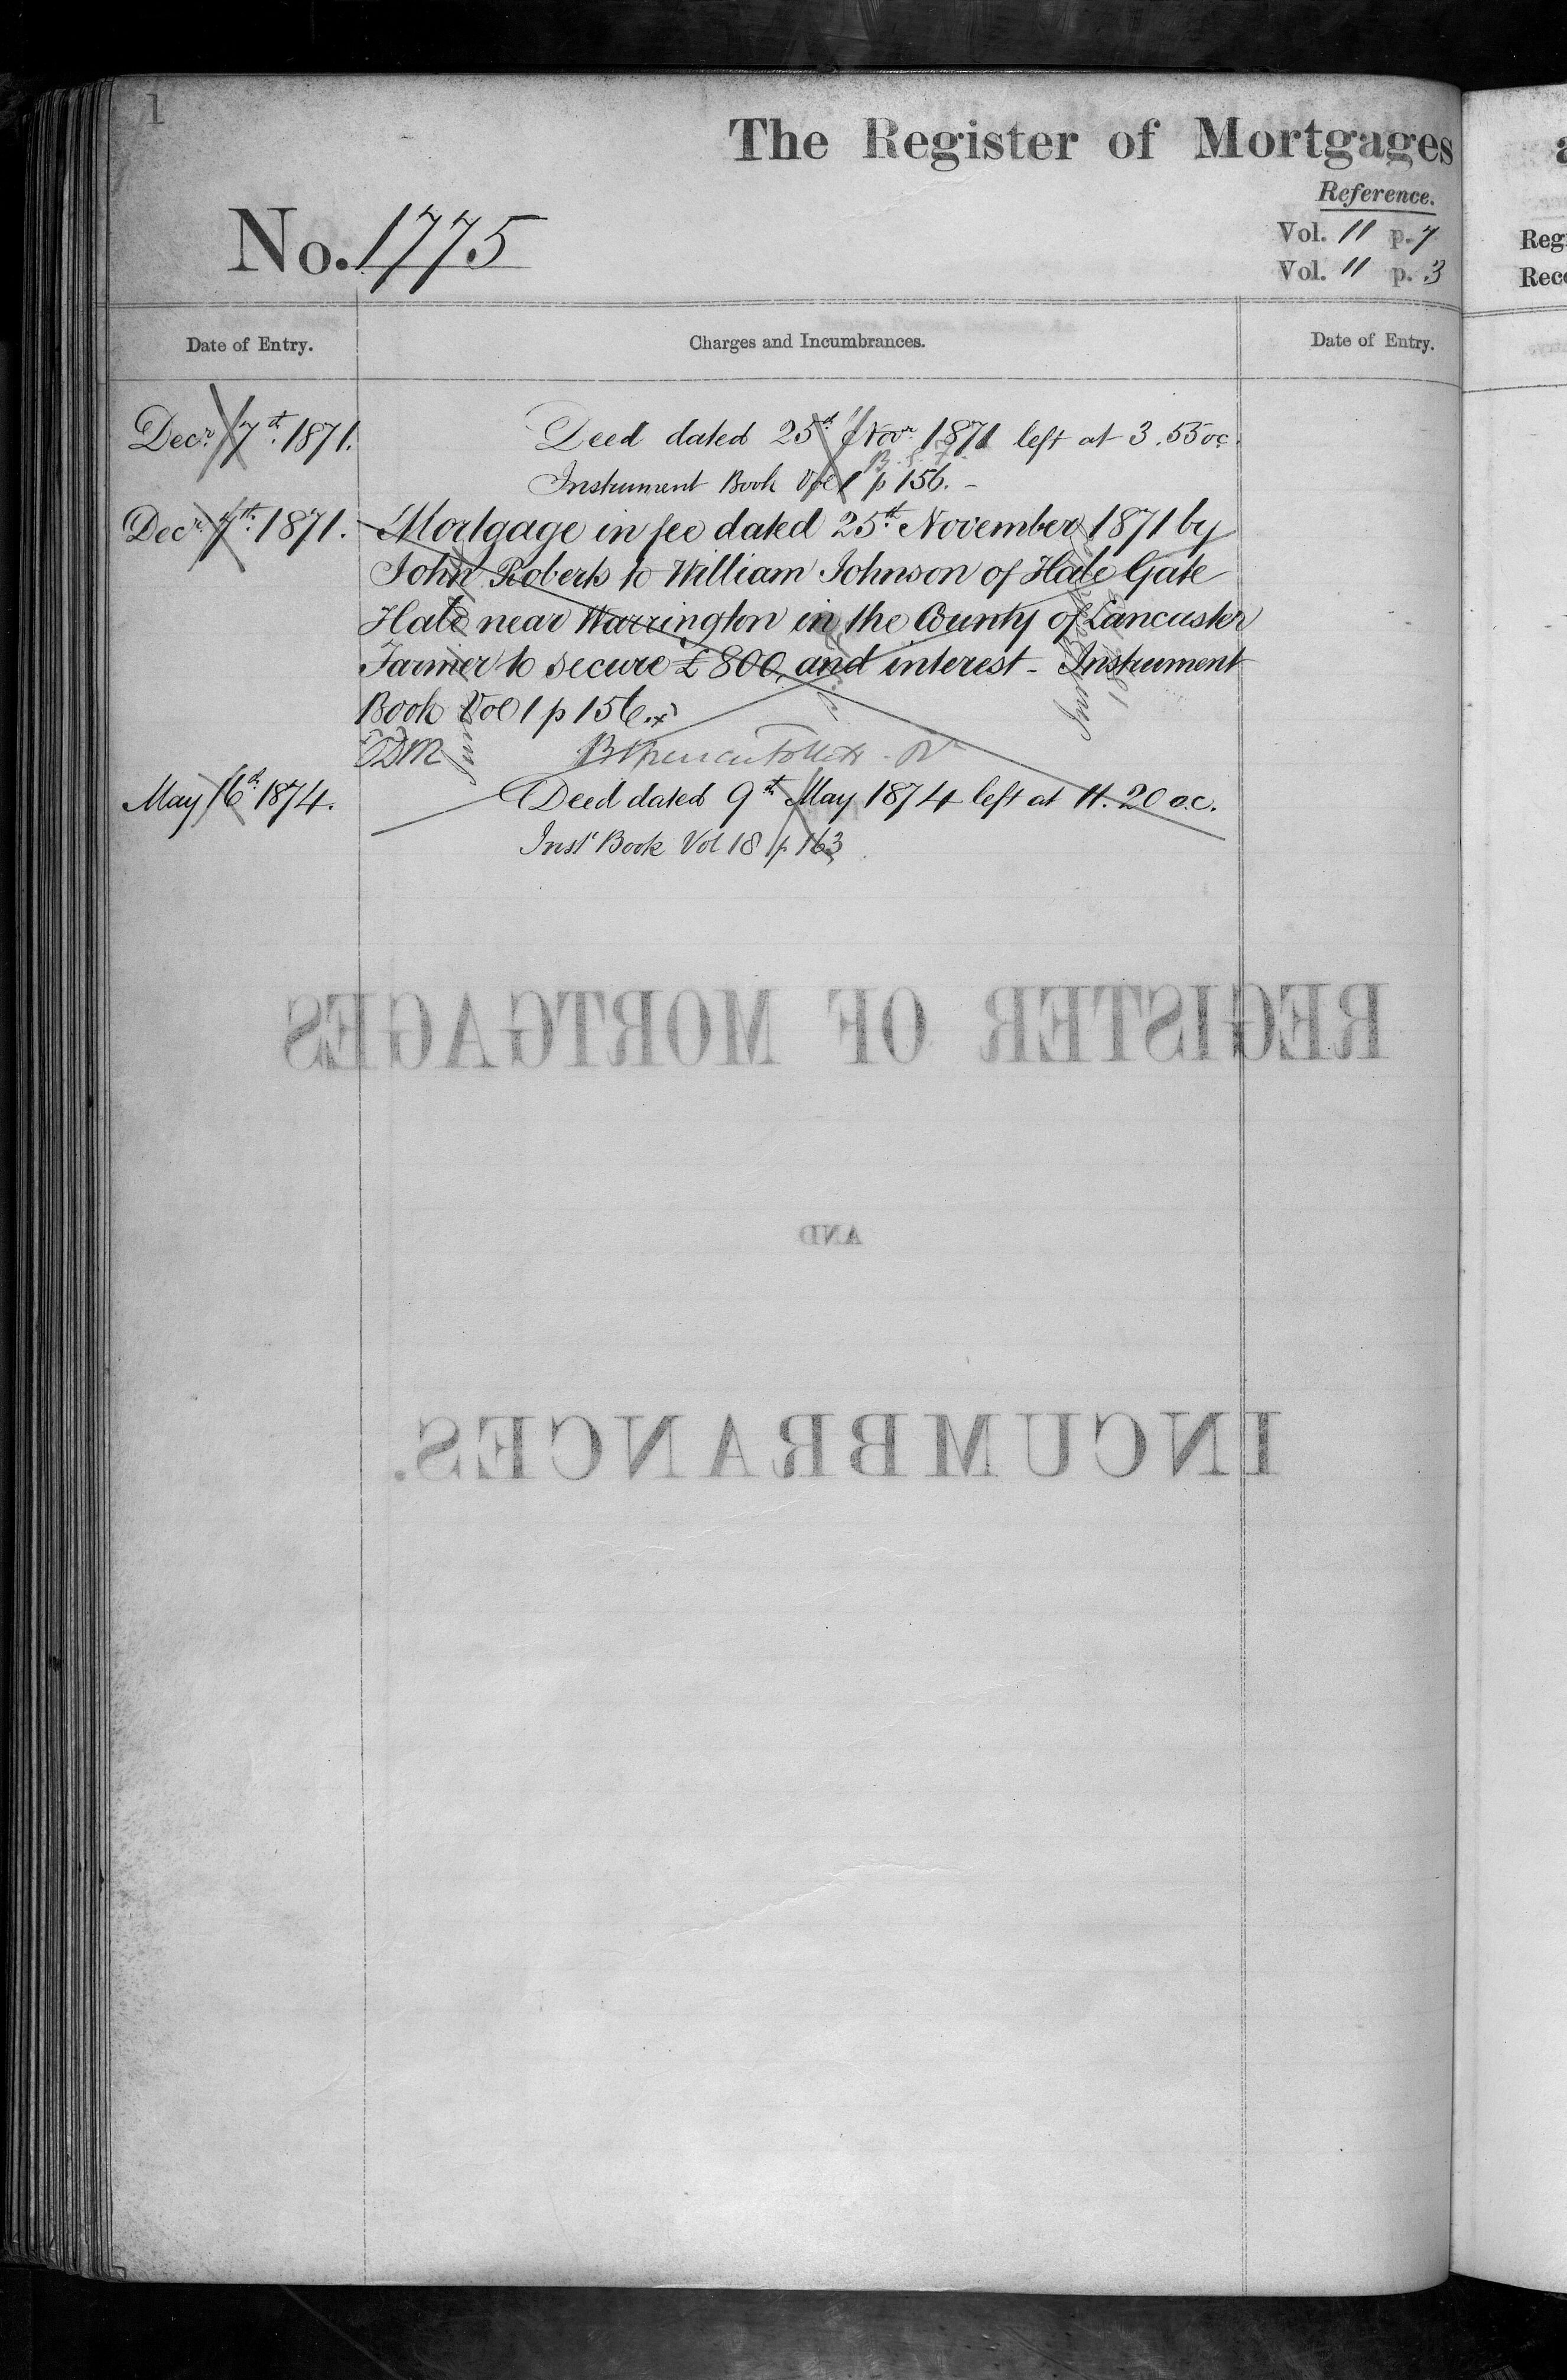 1
The Register of Mortgages
Reference.
No. 1775
Vol. 11 p. 7
Vol. 11 p. 3
Reg
Rec
Date of Entry.
Charges and Incumbrances.
Date of Entry.
Decr. 7th. 1871.
Deed dated 25th Novr 1871 left at 3.55 oc.
Instrument Book Vol 1 p 156. -
Decr. 7th. 1871.
Mortgage in fee dated 25th November 1871 by
John Roberts to William Johnson of Hale Gate
Hale near Warrington in the County of Lancaster
Farmer to secure £800 and interest - Instrument
Book Vol 1 p 156.
May 16th 1874.
Deed dated 9th May 1874 left at 11.20 oc.
Inst Book Vol 18 p 163
REGISTER OF MORTGAGES
AND
INCUMBRANCES.